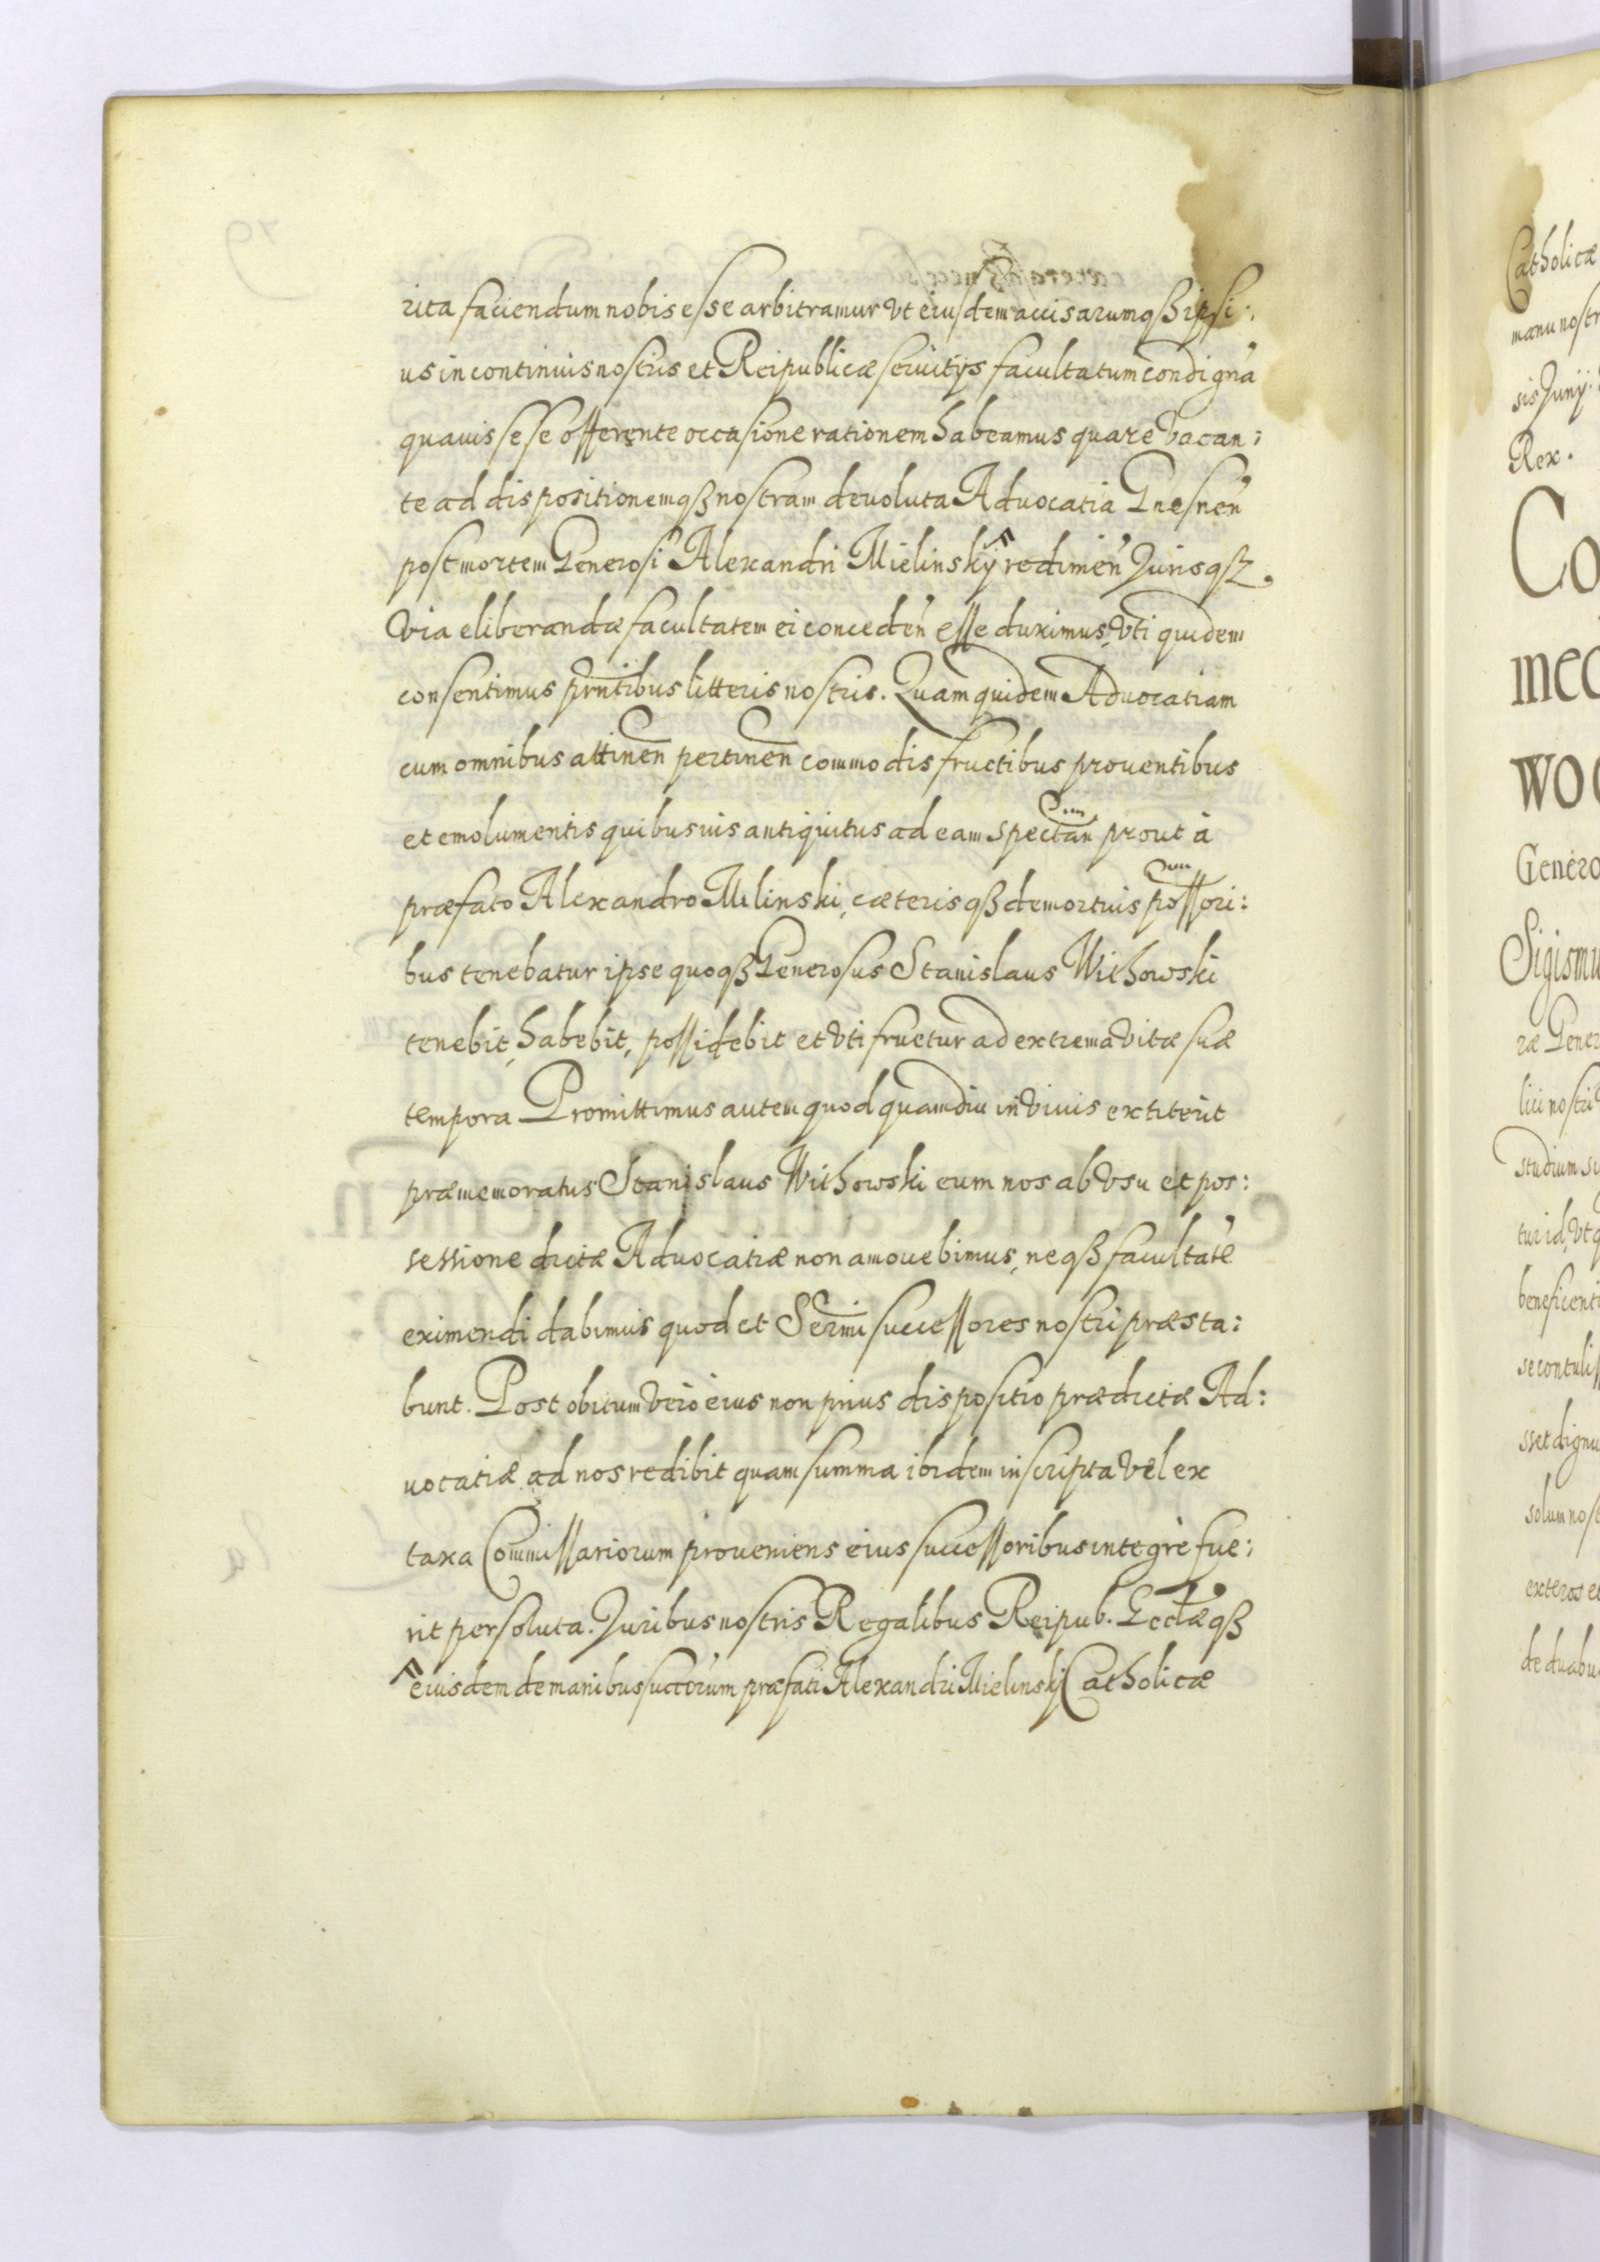 rita faciendum nobis esse arbitramur vt eiusdem accisarumqß ipsi:
us in continuis nostris et Reipublicæ seruitÿs facultatum condigna
quauis sese offerente occasione rationem habeamus quare vacan:
te ad dispositionemqß nostram devoluta Advocatia Gnesnen
post mortem Generosi Alexandri Mielinskÿ redimen Jurisqß
via eliberandæ facultatem ei conceden esse duximus, vti quidem
consentimus prntibus litteris nostris. Quam quidem Advocatiam
cum omnibus attinen pertinen commodis fructibus prouentibus
et emolumentis quibusuis antiquitus ad eam spectan prout à
præfato Alexandro Milinski, cæterisqß demortuis possori:
bus tenebatur ipse quoqß Generosus Stanislaus Withowski
tenebit, habebit, possidebit et vti fruetur ad extrema vitæ suæ
tempora Promittimus autem quod quamdiu in viuis extiterit
præmemoratus Stanislaus Withowski eum nos ab vsu et pos:
sessione dictæ Advocatiæ non amouebimus, neqß facultate
eximendi dabimus quod et Sermi successores nostri præsta:
bunt. Post obitum verò eius non prius dispositio prædictæ Ad:
uocatiæ ad nos redibit quam summa ibidem inscripta vel ex
taxa Commissariorum proueniens eius successoribus integrè fue:
rit persoluta. Juribus nostris Regalibus Reipub. Ecclæqß
eiusdem de manibus succorum præfati Alexandri Mielinskj Catholicæ
Catholicæ
manu nostr
sis Junÿ.
Rex.
Co
nec
wo
Genero
Sigismu
ræ Gener
lici nostri
studium su
tur id, vt q
beneficenti
se contuliss
sset dignu
solum nost
exteros et
de duabu